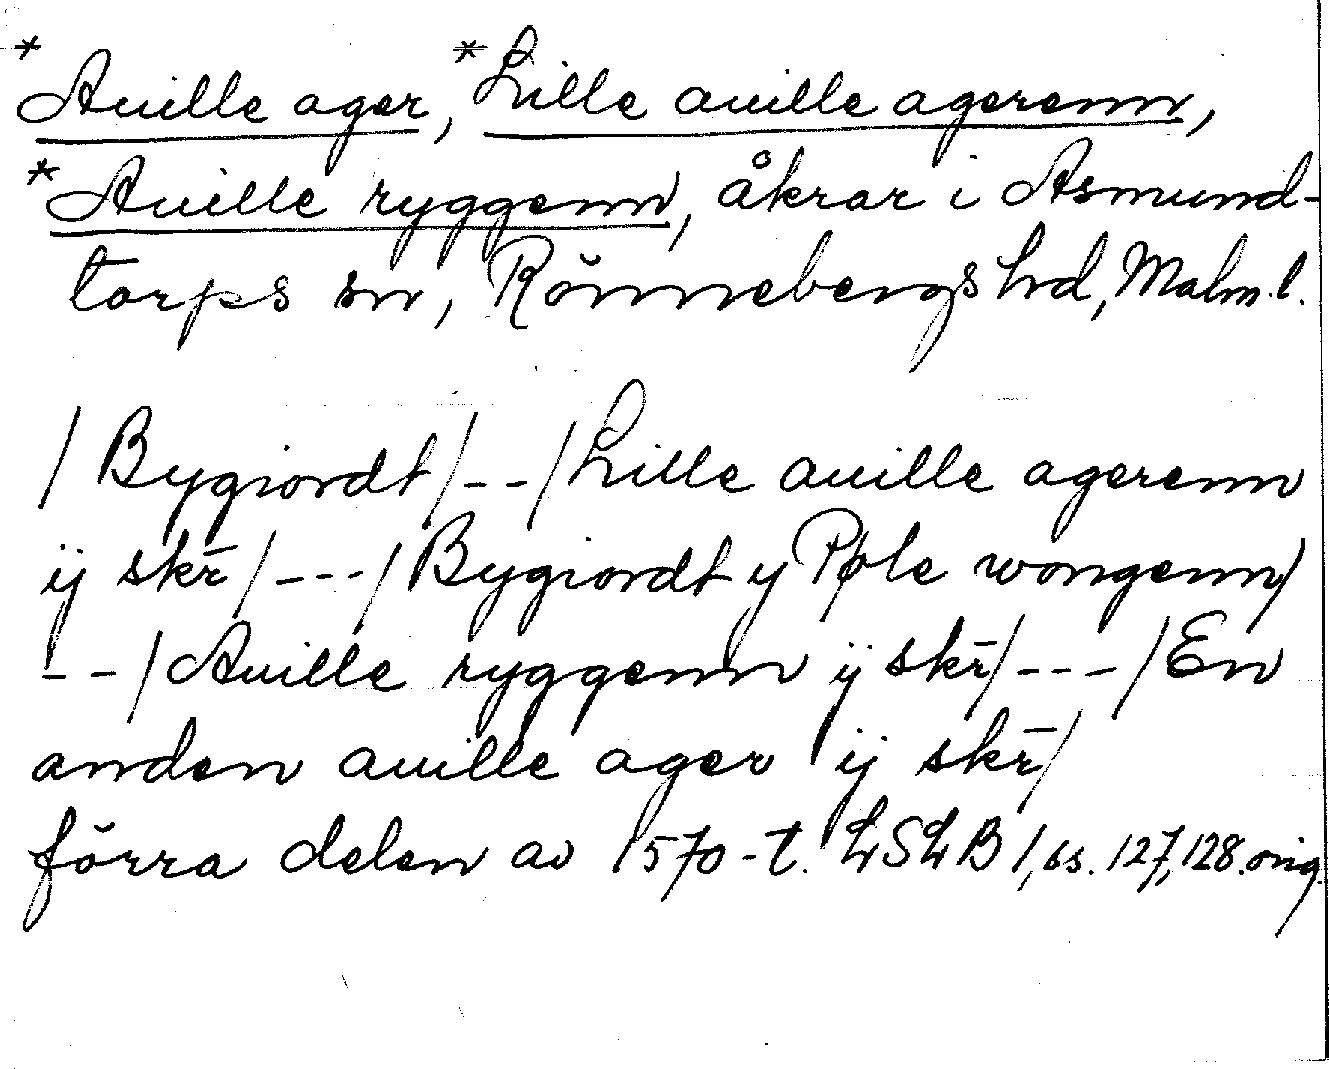 *Auille ager, *Lille auille agerenn,
*Auille ryggenn, åkrar i Asmund-
torps sn, Rönnebergs hd, Malm. l.
/ Bygiordt / -- / Lille auille agerenn
ij skr̄ / --- / Bygiordt y Pøle wongenn /
-- / Auille ryggenn ij skr̄ / --- / En
anden auille ager ij skr̄ /
förra delen av 1570-t. LSLB 1, ss. 127, 128. orig.